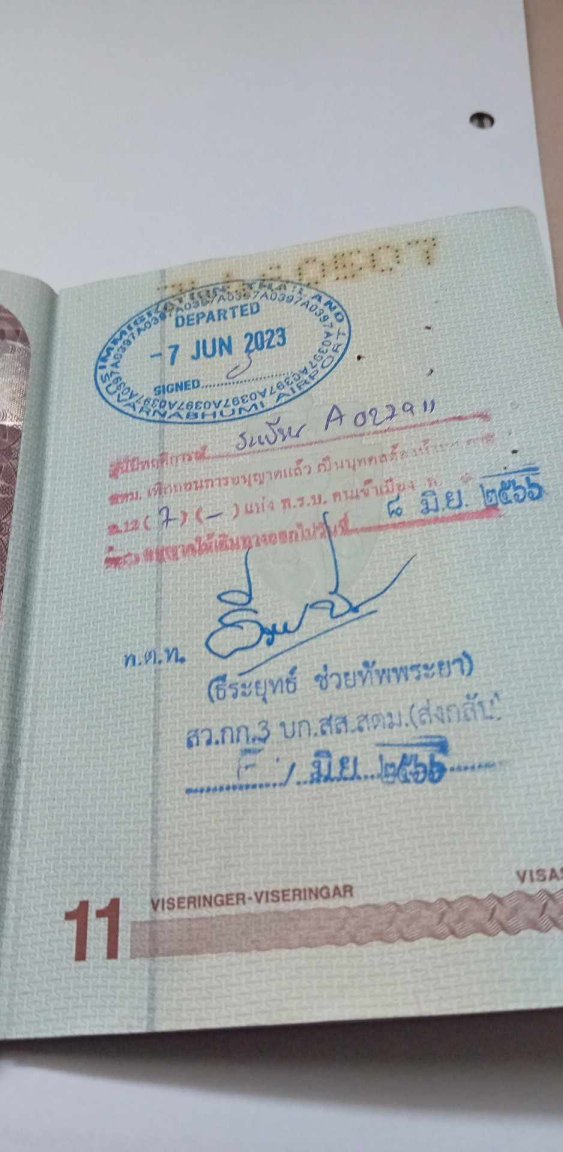 IMMIGRATION THAILAND
DEPARTED
- 7 JUN 2023
SIGNED
SUVARNABHUMI AIRPORT
A0397A0397A0397A0397A0397
ผู้มีพฤติการณ์
สตม. เพิกถอนการอนุญาตแล้ว เป็นบุคคลต้องห้าม
ม.12 ( 7 ) ( – ) แห่ง พ.ร.บ. คนเข้าเมือง
อนุญาตให้เดินทางออกไปวันที่ ๘ มิ.ย. ๒๕๖๖
พ.ต.ท.
(ธีระยุทธ์ ช่วยทัพพระยา)
สว.กก.3 บก.สส.สตม.(ส่งกลับ)
มิ.ย. ๒๕๖๖
11 VISERINGER-VISERINGAR
VISAS